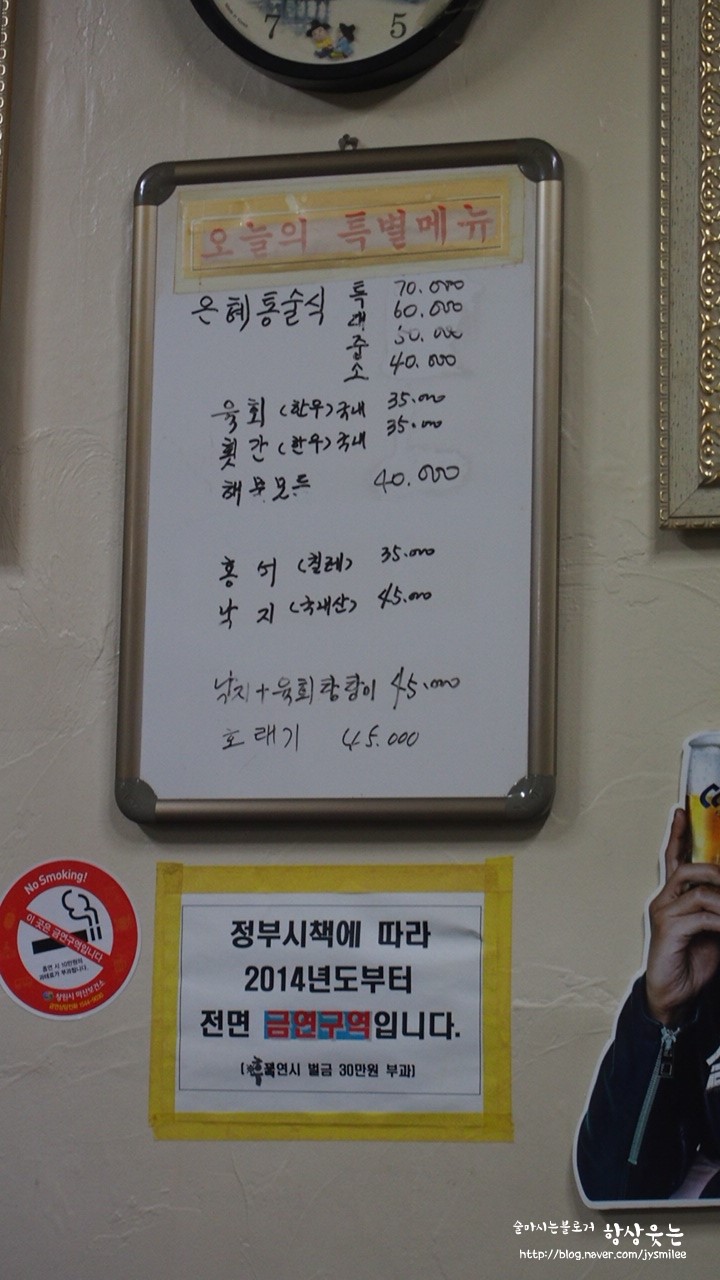 7 5
오늘의 특별메뉴
은혜통술식 특 70.000
대 60.000
중 50.000
소 40.000
육회 (한우)국내 35.000
횟간 (한우)국내 35.000
해물모듬 40.000
홍어 (칠레) 35.000
낙지 (국내산) 45.000
낙지+육회탕탕이 45.000
호래기 45.000
No Smoking!
이 곳은 금연구역입니다
흡연 시 10만원의
과태료가 부과됩니다.
창원시 마산보건소
정부시책에 따라
2014년도부터
전면 금연구역입니다.
(흡연시 벌금 30만원 부과)
술마시는블로거 항상웃는
http://blog.naver.com/jysmilee